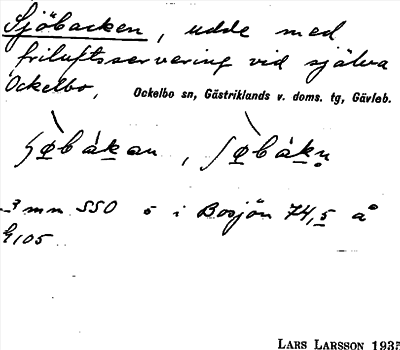 Sjöbacken, udde med
friluftsservering vid själva
Ockelbo,
Ockelbo sn, Gästriklands v. doms. tg, Gävleb.
3 mm SSO ö i Bosjön 74,5 å
105
LARS LARSSON 1935